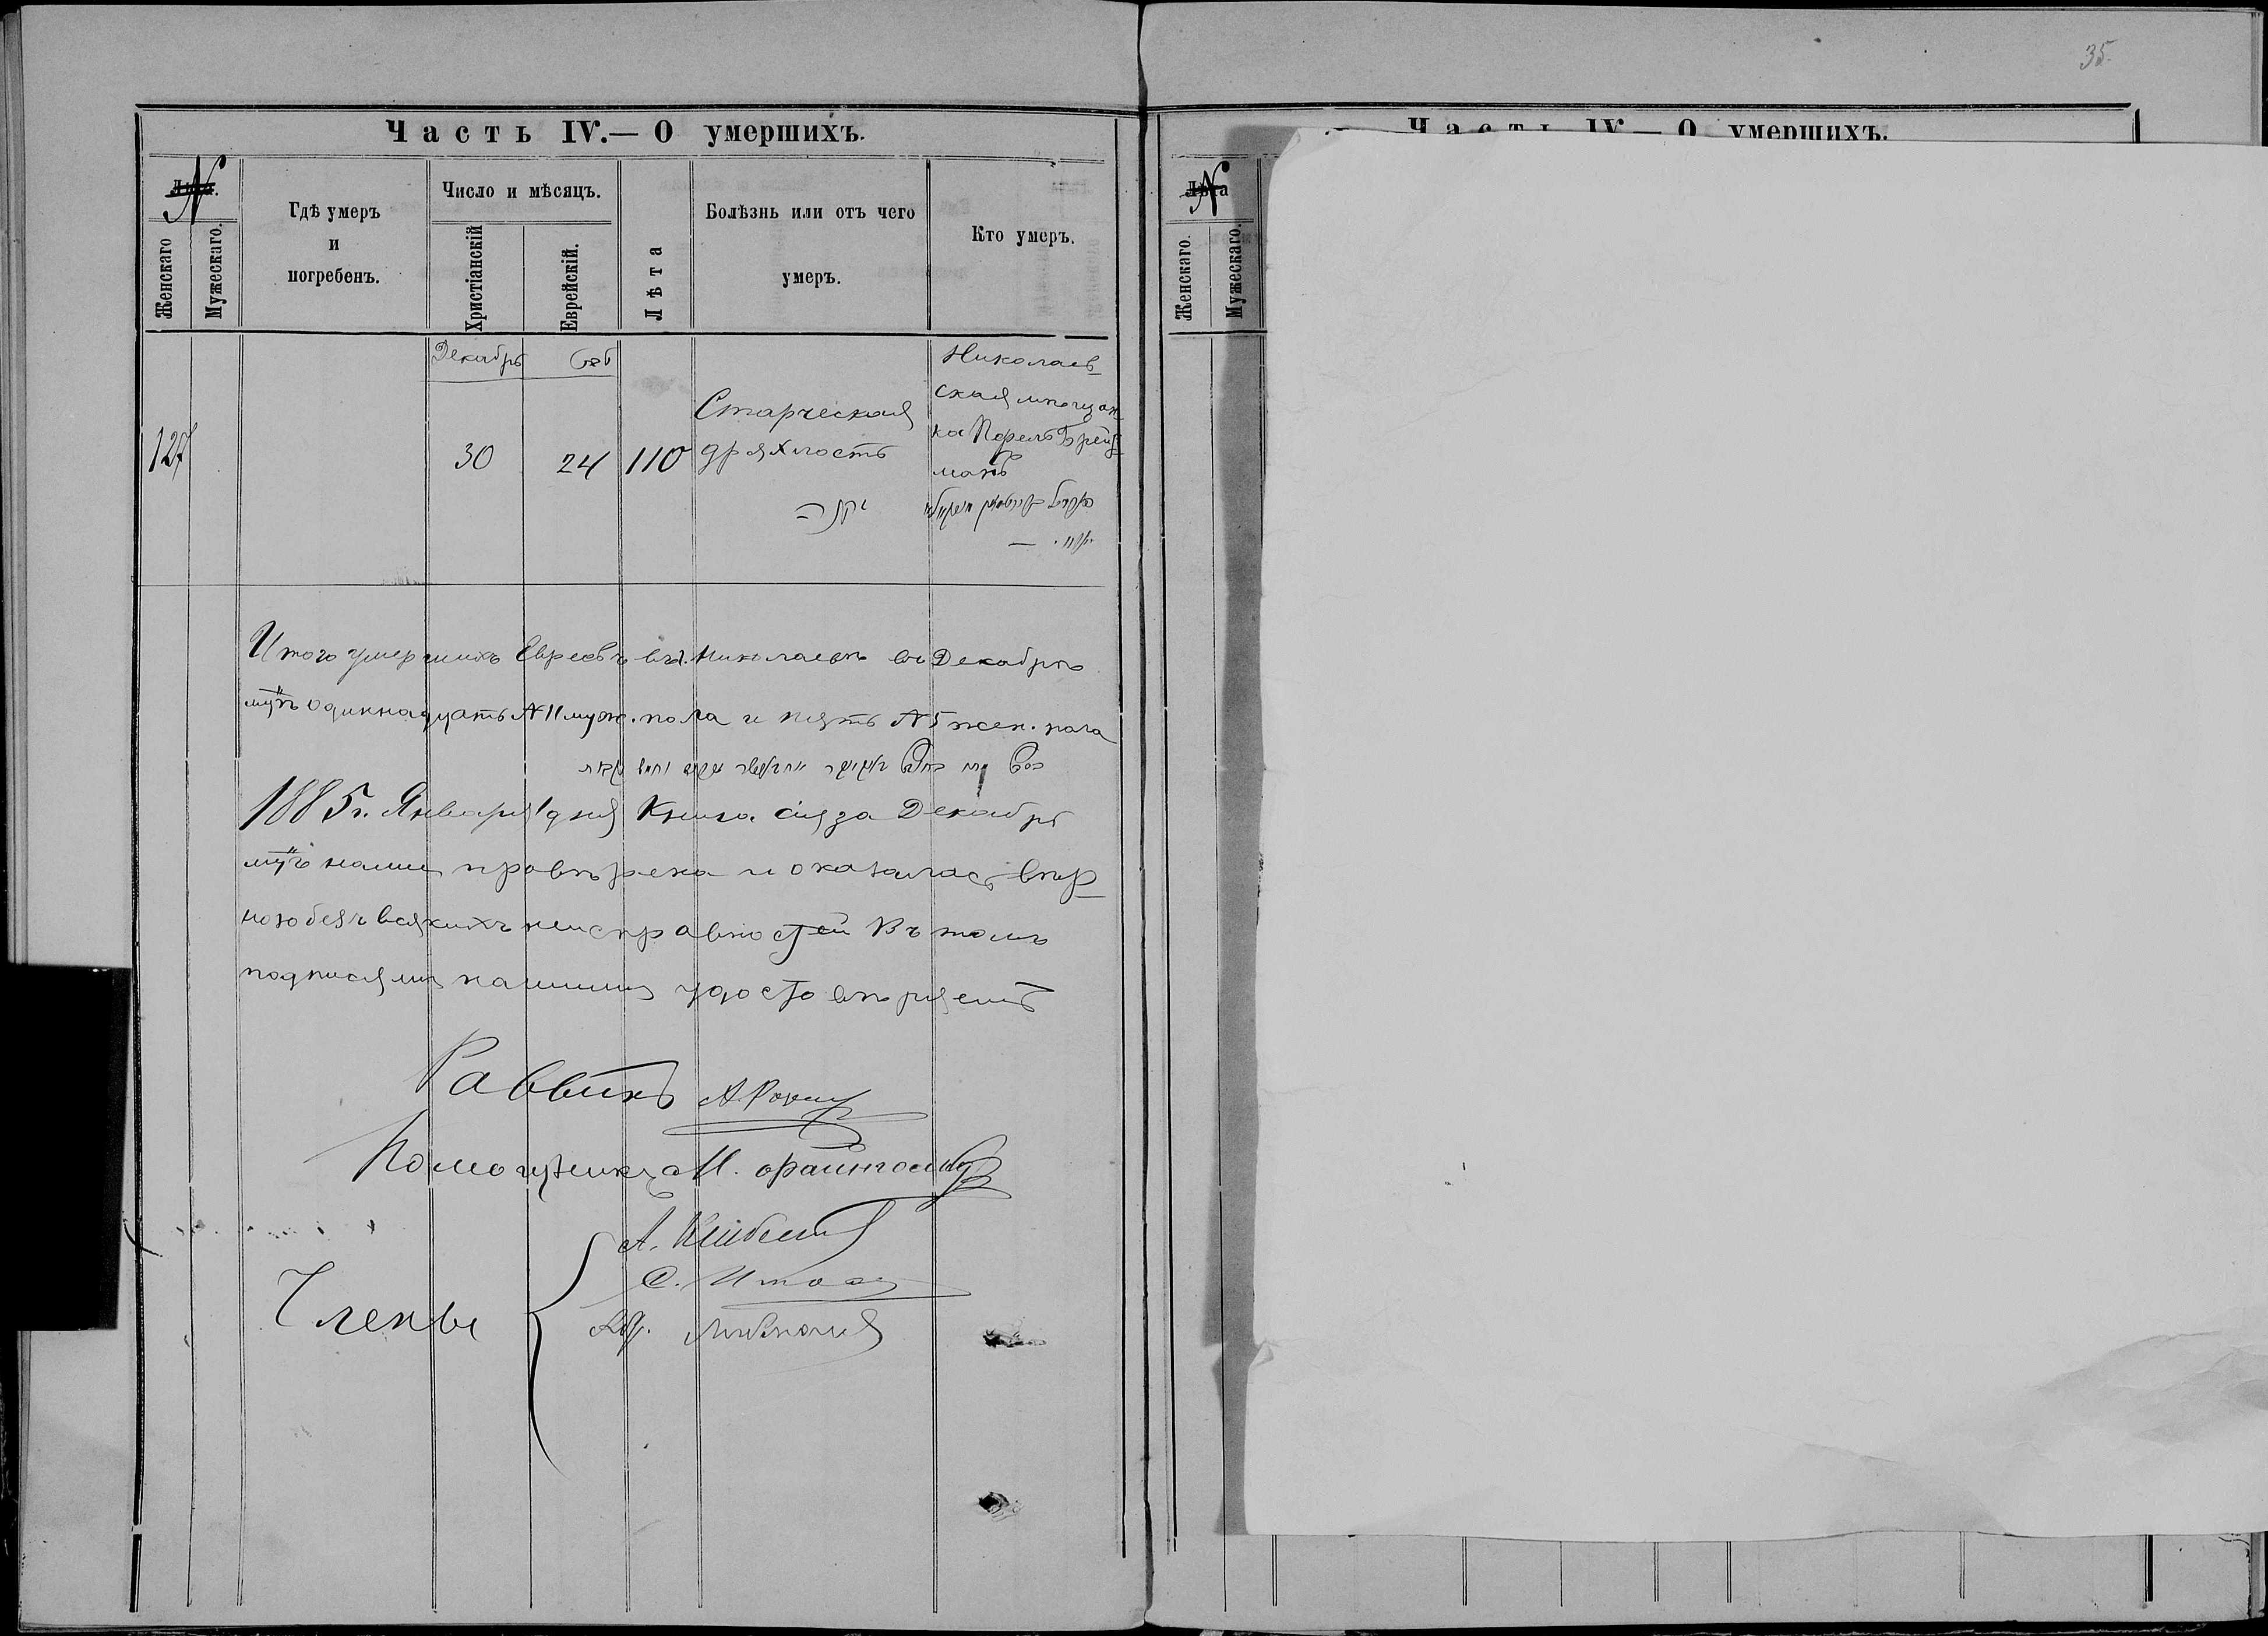 35.
Часть IV.— О умершихъ.
Лѣта.
N
Женскаго
Мужескаго.
Гдѣ умеръ
и
погребенъ.
Число и мѣсяцъ.
Христіанскій
Еврейскій.
Лѣта
Болѣзнь или отъ чего
умеръ.
Кто умеръ.
Декабрь
127
30
24
110
Старческая
дряхлость
זקנה
Николаев
ская мѣщан
ка Перель Брейт
манъ
Итого умершихъ Евреевъ въ г. Николаевѣ въ Декабрѣ
мцѣ одиннадцать № 11 муж. пола и пять № 5 жен. пола
1885 г. Января 1 дня Книга сія за Декабрь
мцъ нами провѣрена и оказалась вѣр
ною безъ всякихъ неисправностей Въ томъ
подписями нашими удостовѣряемъ
Раввинъ
Помощникъ М.
Члены
А.
С.
Часть IV.— О умершихъ.
Лѣта
N
Женскаго.
Мужескаго.